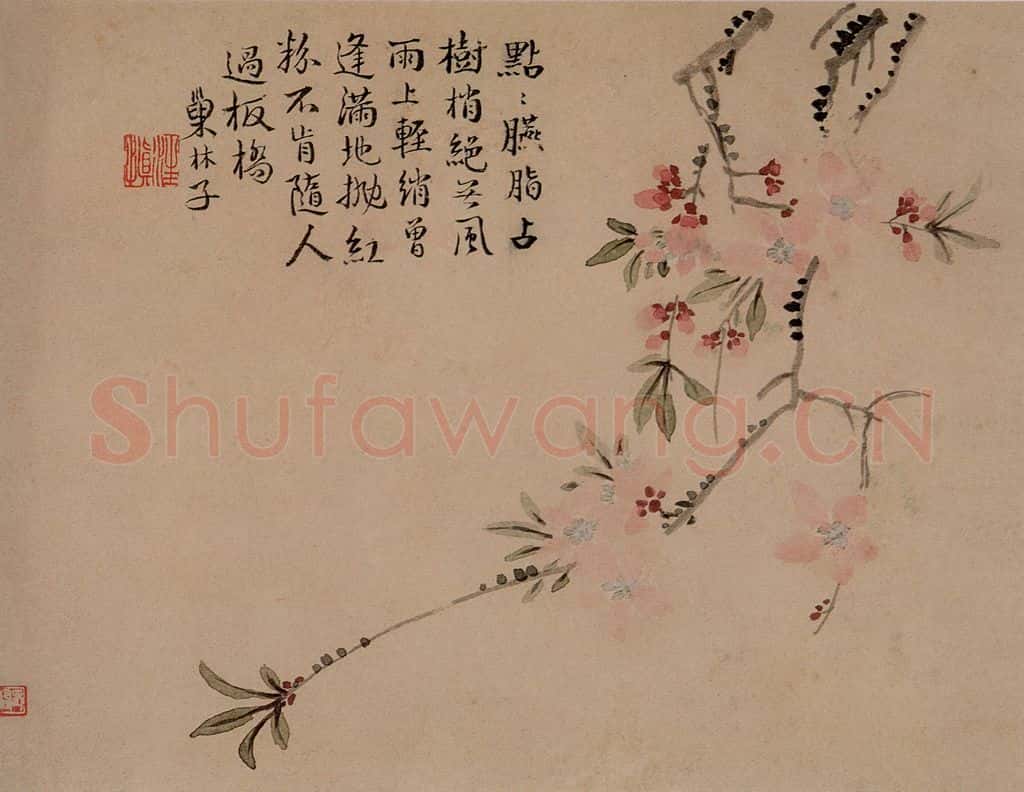 點〻臙脂占
樹梢絕无風
雨上輕綃曾
逢滿地拋紅
粉不肯隨人
過板橋
巢林子
Shufawang.CN